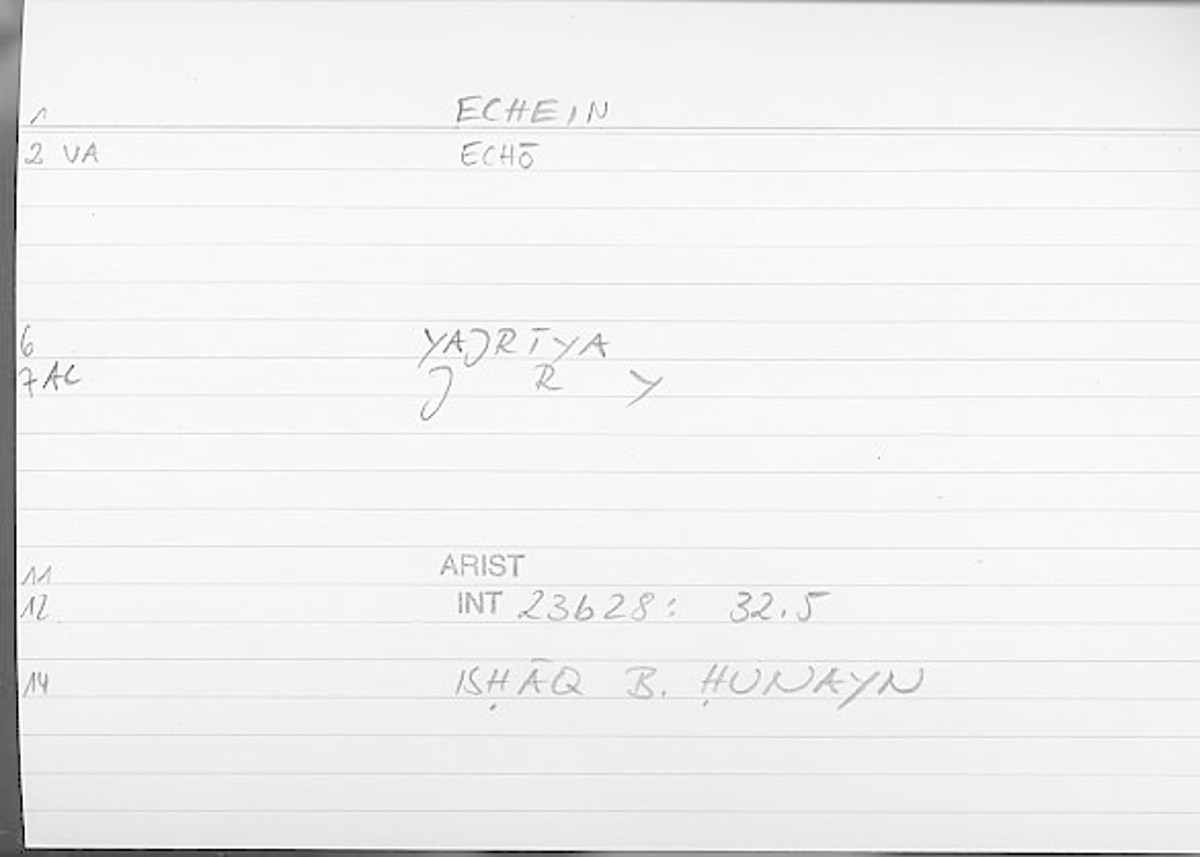 1 ECHEIN
2 VA ECHŌ
6 YAJRĪYA
7 AC J R Y
11 ARIST
12 INT 23b28: 32.5
14 ISḤĀQ B. ḤUNAYN